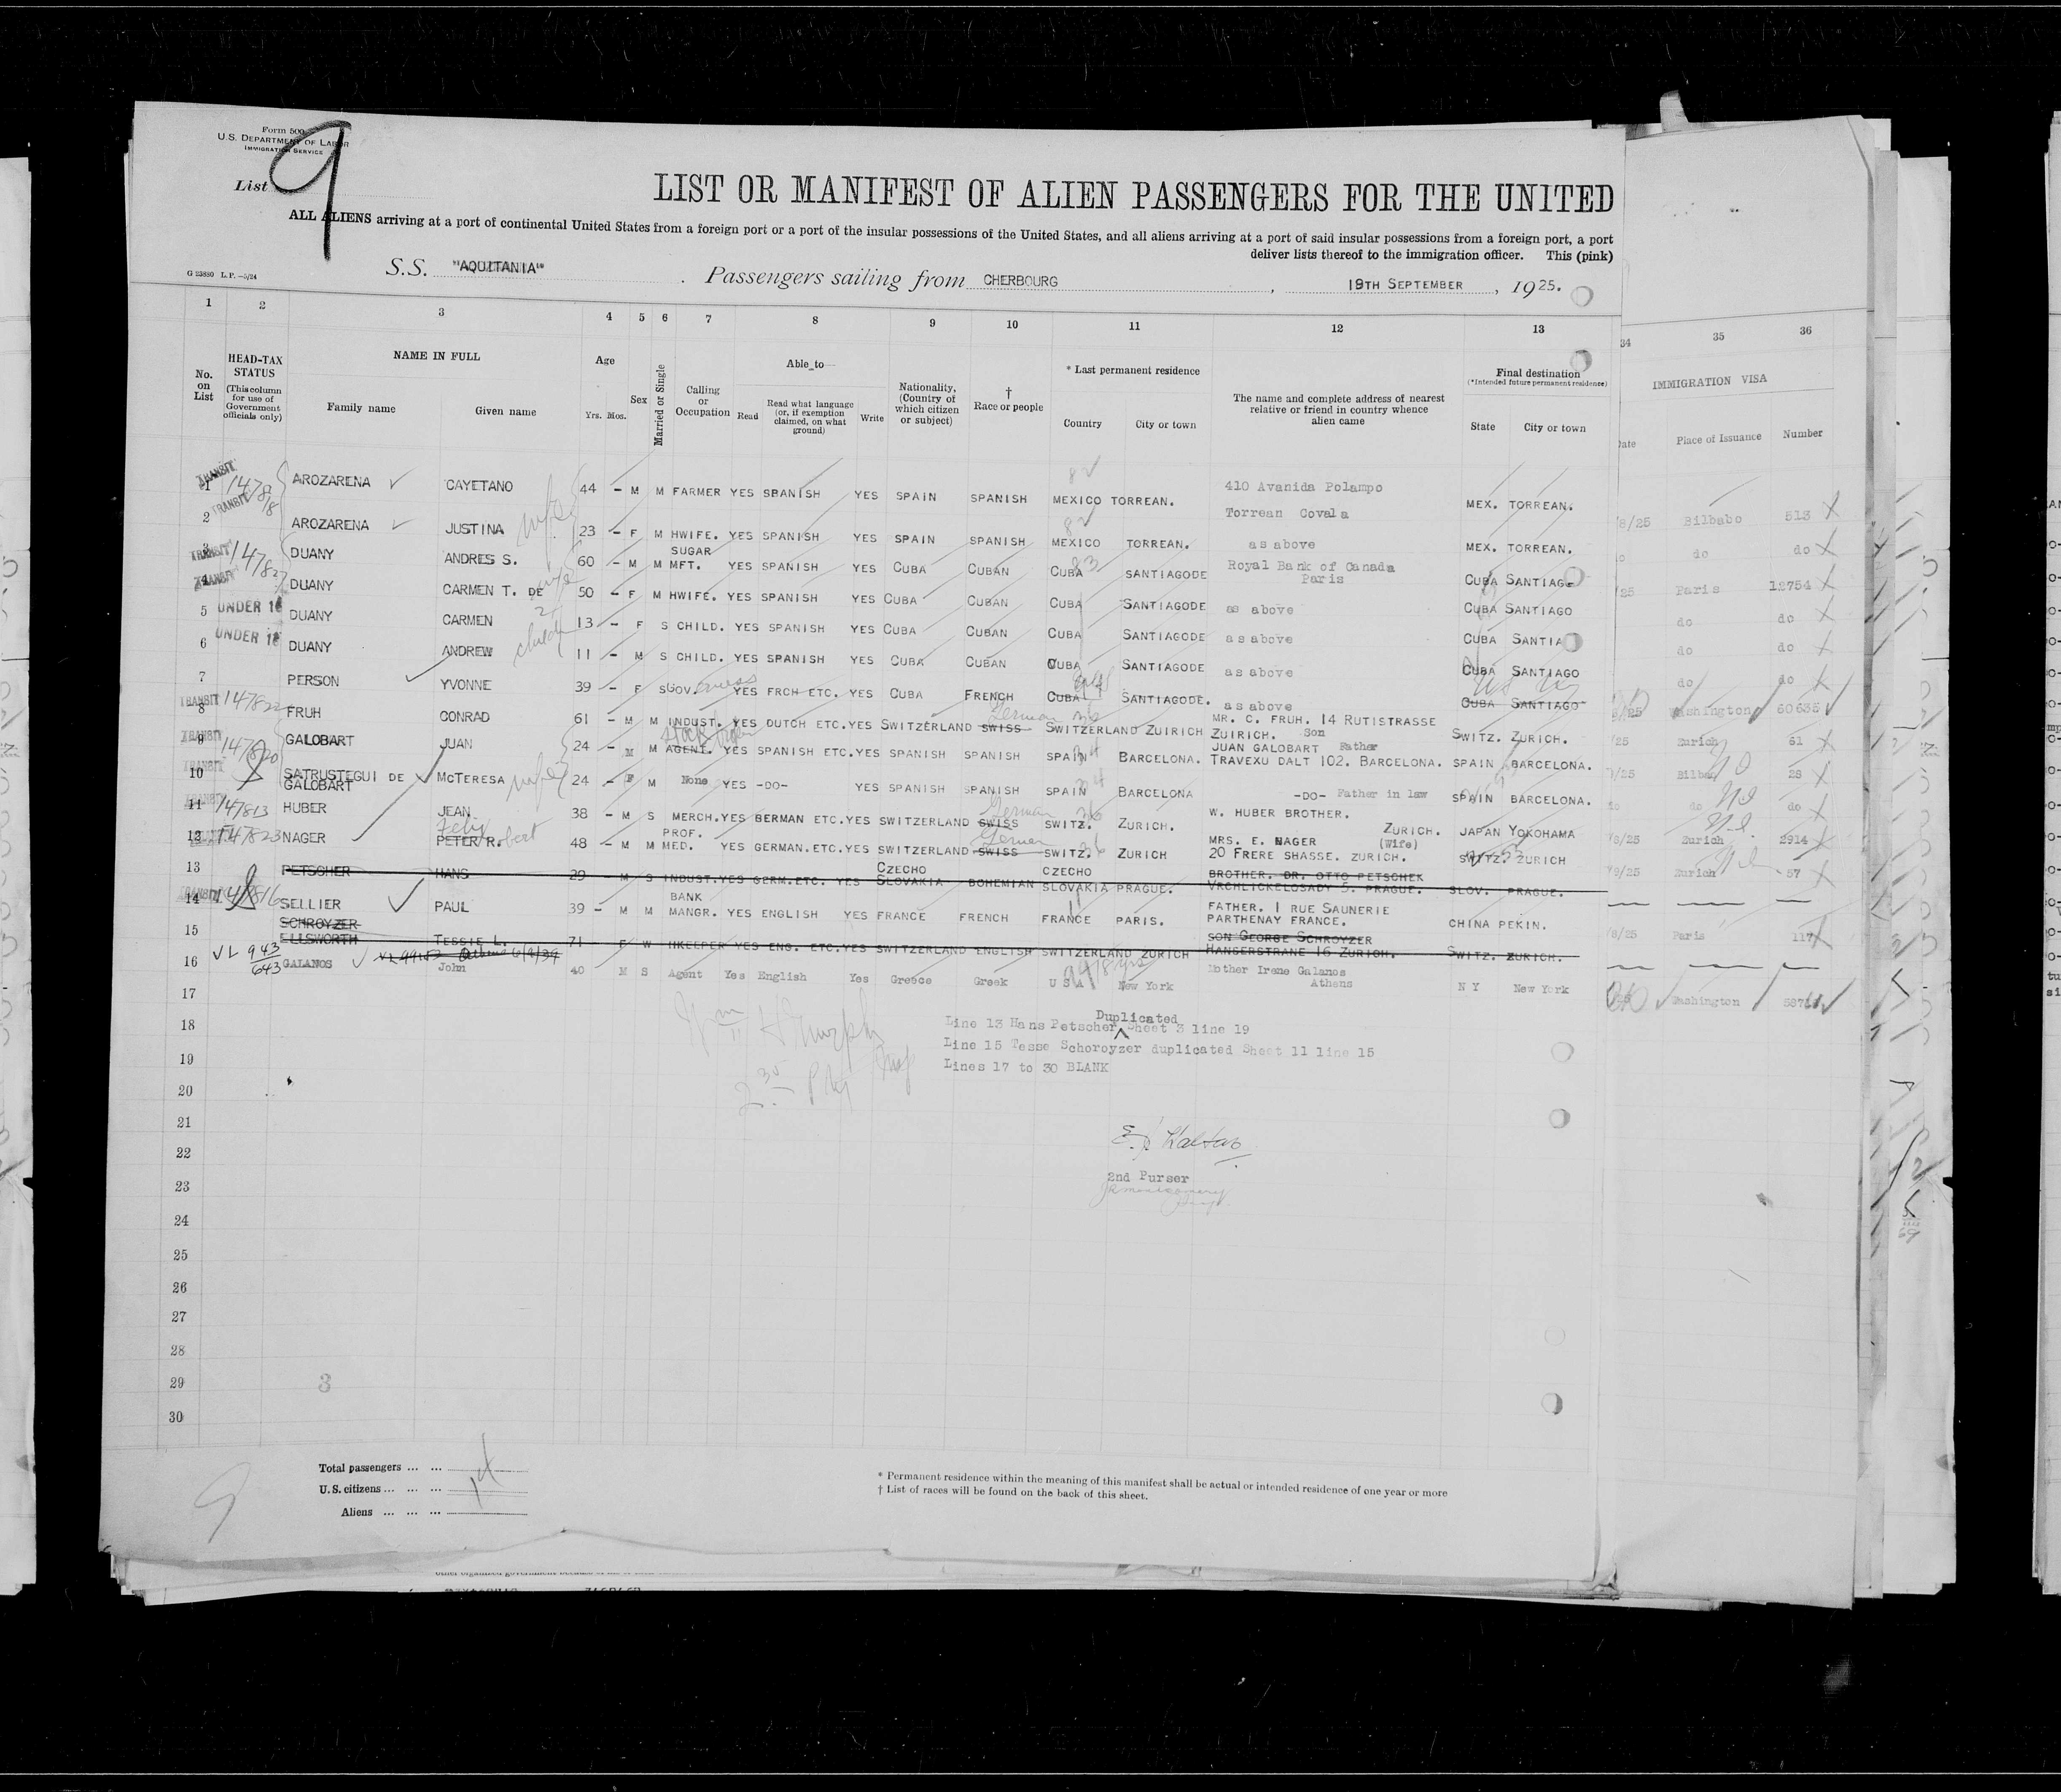 Form 500
U.S. DEPARTMENT OF LABOR
IMMIGRATION SERVICE
List 9
LIST OR MANIFEST OF ALIEN PASSENGERS FOR THE UNITED
ALL ALIENS arriving at a port of continental United States from a foreign port or a port of the insular possessions of the United States, and all aliens arriving at a port of said insular possessions from a foreign port, a port
deliver lists thereof to the immigration officer. This (pink)
G 23880 L.P.—5/24
S.S. "AQUITANIA" Passengers sailing from CHERBOURG, 19TH SEPTEMBER, 1925.
1 2 3 4 5 6 7 8 9 10 11 12 13 34 35 36
No. on List
HEAD-TAX STATUS (This column for use of Government officials only)
NAME IN FULL
Family name Given name
Age Yrs. Mos.
Sex
Married or Single
Calling or Occupation
Able to—
Read Read what language (or, if exemption claimed, on what ground) Write
Nationality, (Country of which citizen or subject)
† Race or people
* Last permanent residence
Country City or town
The name and complete address of nearest relative or friend in country whence alien came
Final destination (*Intended future permanent residence)
State City or town
IMMIGRATION VISA
Date Place of Issuance Number
1 TRANSIT AROZARENA CAYETANO 44 – M M FARMER YES SPANISH YES SPAIN SPANISH MEXICO TORREAN. 410 Avanida Polampo Torrean Covala MEX. TORREAN. 8/25 Bilbabo 513
2 TRANSIT AROZARENA JUSTINA wife 23 – F M HWIFE. YES SPANISH YES SPAIN SPANISH MEXICO TORREAN. as above MEX. TORREAN. do do do
3 TRANSIT DUANY ANDRES S. 60 – M M SUGAR MFT. YES SPANISH YES CUBA CUBAN CUBA SANTIAGODE Royal Bank of Canada Paris CUBA SANTIAGO /25 Paris 12754
4 TRANSIT DUANY CARMEN T. DE wife 50 – F M HWIFE. YES SPANISH YES CUBA CUBAN CUBA SANTIAGODE as above CUBA SANTIAGO do do
5 UNDER 16 DUANY CARMEN 13 – F S CHILD. YES SPANISH YES CUBA CUBAN CUBA SANTIAGODE as above CUBA SANTIA do do
6 UNDER 16 DUANY ANDREW child 11 – M S CHILD. YES SPANISH YES CUBA CUBAN CUBA SANTIAGODE as above CUBA SANTIAGO do do
7 PERSON YVONNE 39 – F S GOV.erness YES FRCH ETC. YES CUBA FRENCH CUBA SANTIAGODE. as above CUBA SANTIAGO /25 Washington 60635
8 TRANSIT 147822 FRUH CONRAD 61 – M M INDUST. YES DUTCH ETC. YES SWITZERLAND SWISS German SWITZERLAND ZUIRICH MR. C. FRUH. 14 RUTISTRASSE ZUIRICH. Son SWITZ. ZURICH. /25 Zurich 61
9 TRANSIT 147820 GALOBART JUAN 24 – M M AGENT. YES SPANISH ETC. YES SPANISH SPANISH SPAIN BARCELONA. JUAN GALOBART Father TRAVEXU DALT 102. BARCELONA. SPAIN BARCELONA. /25 Bilbao 28
10 TRANSIT SATRUSTEGUI DE GALOBART McTERESA wife 24 – F M None YES –DO– YES SPANISH SPANISH SPAIN BARCELONA –DO– Father in law SPAIN BARCELONA. do do do
11 TRANSIT 147813 HUBER JEAN 38 – M S MERCH. YES GERMAN ETC. YES SWITZERLAND SWISS German SWITZ. ZURICH. W. HUBER BROTHER. ZURICH. JAPAN YOKOHAMA /8/25 Zurich 2914
12 147823 NAGER PETER R. Felix Robert 48 – M M PROF. MED. YES GERMAN. ETC. YES SWITZERLAND SWISS German SWITZ. ZURICH MRS. E. NAGER (Wife) 20 FRERE SHASSE. ZURICH. SWITZ. ZURICH /9/25 Zurich 57
13 PETSCHER HANS 29 – M S INDUST. YES GERM. ETC. YES CZECHO SLOVAKIA BOHEMIAN CZECHO SLOVAKIA PRAGUE. BROTHER. DR. OTTO PETSCHEK VRCHLICKELOSADY 5. PRAGUE. SLOV. PRAGUE.
14 TRANSIT 147816 SELLIER PAUL 39 – M M BANK MANGR. YES ENGLISH YES FRANCE FRENCH FRANCE PARIS. FATHER. 1 RUE SAUNERIE PARTHENAY FRANCE. CHINA PEKIN. /8/25 Paris 117
15 SCHROYZER ELLSWORTH TESSIE L. 71 – F W HKEEPER YES ENG. ETC. YES SWITZERLAND ENGLISH SWITZERLAND ZURICH SON GEORGE SCHROYZER HANGERSTRANE 16 ZURICH. SWITZ. ZURICH.
16 VL 943/643 GALANOS John 40 M S Agent Yes English Yes Greece Greek U S A New York Mother Irene Galanos Athens N Y New York Washington
17
18 Line 13 Hans Petscher Duplicated Sheet 3 line 19
Line 15 Tesse Schoroyzer duplicated Sheet 11 line 15
19 Lines 17 to 30 BLANK
20
21
22
2nd Purser
23
24
25
26
27
28
29 3
30
9
Total passengers ... ...
U.S. citizens ... ... ...
Aliens ... ... ...
* Permanent residence within the meaning of this manifest shall be actual or intended residence of one year or more
† List of races will be found on the back of this sheet.